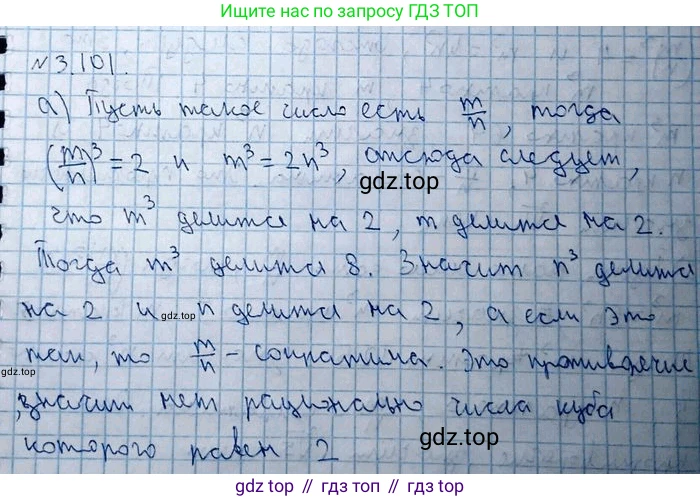 Ищите нас по запросу ГДЗ ТОП
N 3.101.
а) Пусть такое число есть m/n, тогда
(m/n)³ = 2 и m³ = 2n³, отсюда следует,
gdz.top
что m³ делится на 2, m делится на 2.
Тогда m³ делится 8. Значит n³ делится
на 2 и n делится на 2, а если это
gdz.top
так, то m/n - сократима. Это противоречие
gdz.top
, значит нет рационально числа куба
которого равен 2
gdz.top
gdz top // гдз топ // gdz.top